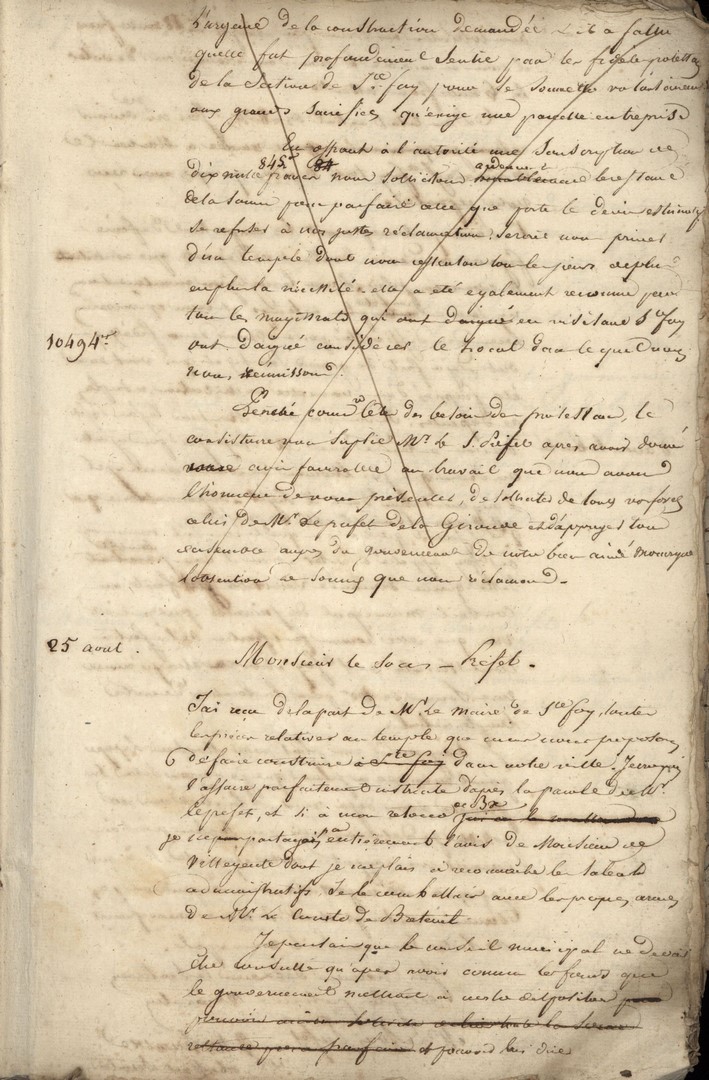 L'urgence de la construction demandée & il a fallu
qu'elle fut profondement sentie par les fidèles protestans
de la Section de Ste foy pour se soumettre volontairement
aux grands sacrifices qu'exige une pareille entreprise
En offrant à l'autorité une Souscription de
845f
dix mille francs nous sollicitons ardemment le restant
de la somme pour parfaire celle que porte le devis estimatif
se refuser à nos justes réclamations, seroit nous priver
d'un temple dont nous sentons tous les jours de plus
en plus la nécessité. elle a été également reconnue par
tous les magistrats qui ont daigné en visitant Ste foy
10494f.
ont daigné considérer le local dans lequel nous
nous réunissons.
Pénétré comme des besoins des protestans, le
consistoire vous suplie Mr le S. Préfet après avoir donné
votre avis favorable au travail que nous avons
l'honneur de vous présenter, de solliciter de tous vos forces
celui de Mr. Le préfet de la Gironde et d'appuyer tous
ensemble auprès du gouvernement de notre bien aimé monarque
l'obtention de Somme que nous réclamons.
25 aout.
Monsieur le Sous-Préfet.
J'ai reçu de la part de Mr. Le maire de Ste foy, toutes
les pièces relatives au temple que nous nous proposons
de faire construire à Ste foy dans notre ville.
l'affaire parfaitement instruite d'après la parole de Mr.
le préfet, et si à mon retour de Bx
je ne partageois pas entièrement l'avis de Monsieur de
Villeyente dont je me plais à reconnoître les talents
administratifs. Je le combattrais avec les propres armes
de Mr. Le Comte de Breteuil.
Je pensais que le conseil municipal ne devait
être consulté qu'après avoir connu les fonds que
le gouvernement mettroit à notre disposition pour
pouvoir
restante pour parfaire et pouvoir lui dire